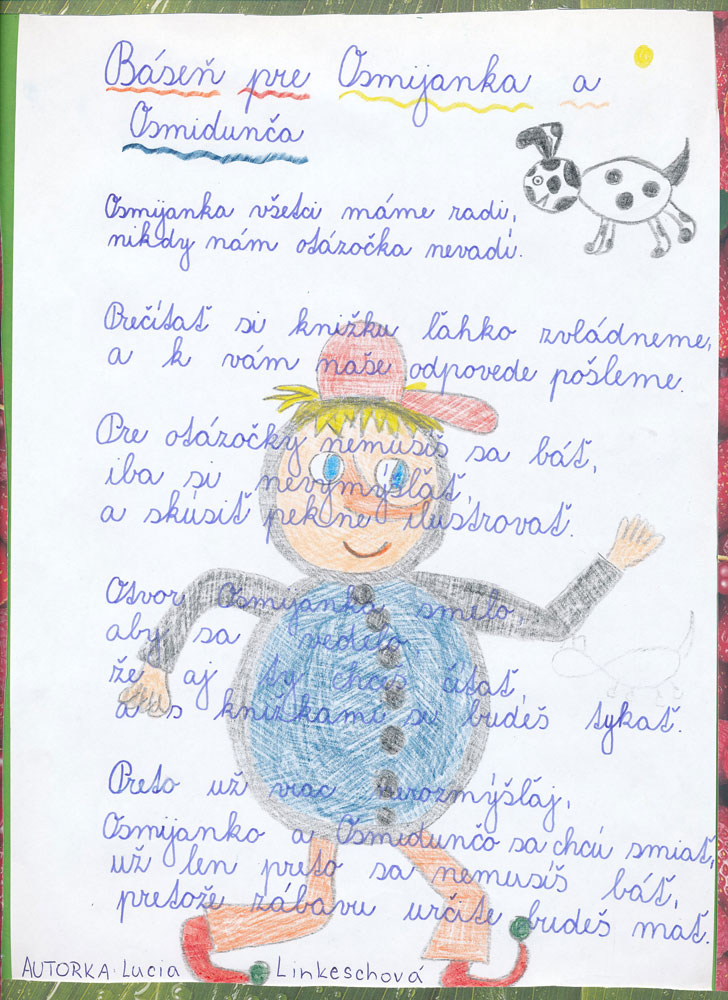 Báseň pre Osmijanka a
Osmidunča
Osmijanka všetci máme radi,
nikdy nám otázočka nevadí.
Prečítať si knižku ľahko zvládneme,
a k vám naše odpovede pošleme.
Pre otázočky nemusíš sa báť,
iba si nevymýšľať,
a skúsiť pekne ilustrovať.
Otvor Osmijanka smelo,
aby sa vedelo
že aj ty chceš čítať,
a s knižkami si budeš tykať.
Preto už viac nerozmýšľaj,
Osmijanko a Osmidunčo sa chcú smiať,
už len preto sa nemusíš báť,
pretože zábavu určite budeš mať.
AUTORKA: Lucia Linkeschová